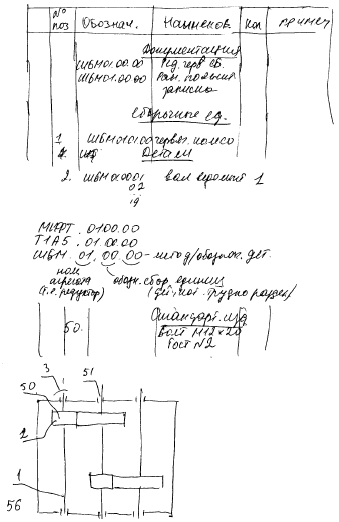 № поз Обознач. Наименов. Кол Примеч
Документация
ШБМ01.00.00 Ред. черв СБ.
ШБМ01.00.00 записка
Сборочные ед.
1 ШБМ01.01.00 червяч. колесо
Детали
2. ШБМ00.00.01 вал 1
02
19
МИРТ. 01.00.00
Т1А5. 01.00.00
ШБМ. 01.00.00 - метод/обознач. дет.
ном агрегата (т.е. редуктор) обозн. сбор единиц
Стандарт. изд
50. Болт М12×20
Гост №2
3 51
50
2
1
56